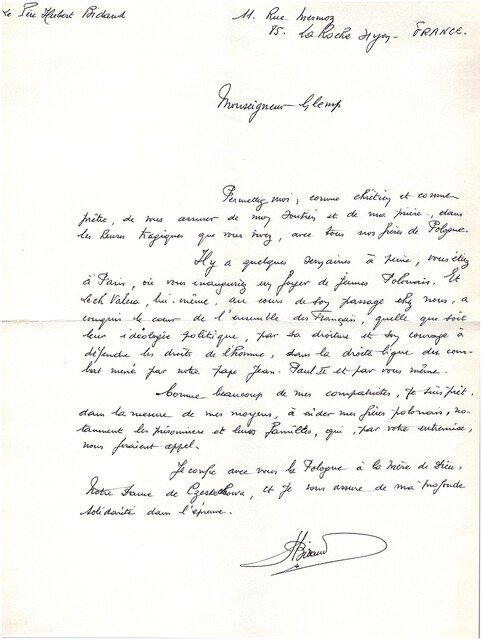 Le Père Herbert Bidaud
11. Rue Mermoz
85. La Roche s/Yon - FRANCE.
Monseigneur Glemp
Permettez moi, comme chrétien et comme
prêtre, de vous assurer de mon soutien et de ma prière, dans
les heures tragiques que vous vivez, avec tous nos frères de Pologne.
Il y a quelques semaines à peine, vous étiez
à Paris, où vous inauguriez un foyer de jeunes Polonais. Et
Lech Valesa, lui-même, au cours de son passage chez nous, a
conquis le cœur de l'ensemble des Français, quelle que soit
leur idéologie politique, par sa droiture et son courage à
défendre les droits de l'homme, dans la droite ligne des com-
bat mené par notre pape Jean-Paul II et par vous même.
Comme beaucoup de mes compatriotes, je suis prêt,
dans la mesure de mes moyens, à aider mes frères polonais, no-
tamment les prisonniers et leurs familles, qui, par votre entremise,
nous feraient appel.
Je confie avec vous la Pologne à la Mère de Dieu,
Notre Dame de Czestochowa, et je vous assure de ma profonde
solidarité dans l'épreuve.
HBidaud